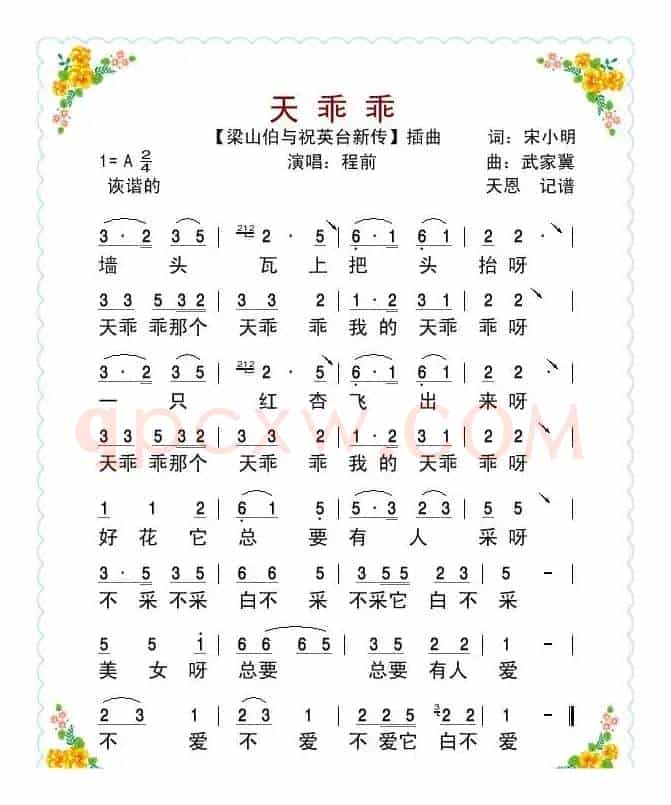 天乖乖
【梁山伯与祝英台新传】插曲 词：宋小明
1=A 2/4 演唱：程前 曲：武家冀
诙谐的 天恩 记谱
3·2 3 5 | 212 2·5 | 6·1 6 1 | 2 2 |
墙头瓦上把头抬呀
3 3 5 3 2 | 3 3 2 | 1·2 3 1 | 2 2 |
天乖乖那个 天乖乖 我的天乖乖呀
3·2 3 5 | 212 2·5 | 6·1 6 1 | 2 2 |
一只红杏飞出来呀
3 3 5 3 2 | 3 3 2 | 1·2 3 1 | 2 2 |
天乖乖那个 天乖乖 我的天乖乖呀
1 1 2 | 6 1 5 | 5·3 2 3 | 5 6 |
好花它总要有人采呀
3·5 3 5 | 5 5 5 | 3 5 5 2 3 | 5 - |
不采不采 白不采 不采它白不采
5 5 1 | 6 6 6 5 | 3 5 2 2 | 1 - |
美女呀总要 总要有人爱
2 3 1 | 2 3 1 | 1 2 2 5 3 2 2 | 1 - ‖
不爱不爱 不爱它白不爱
qpcxw.COM